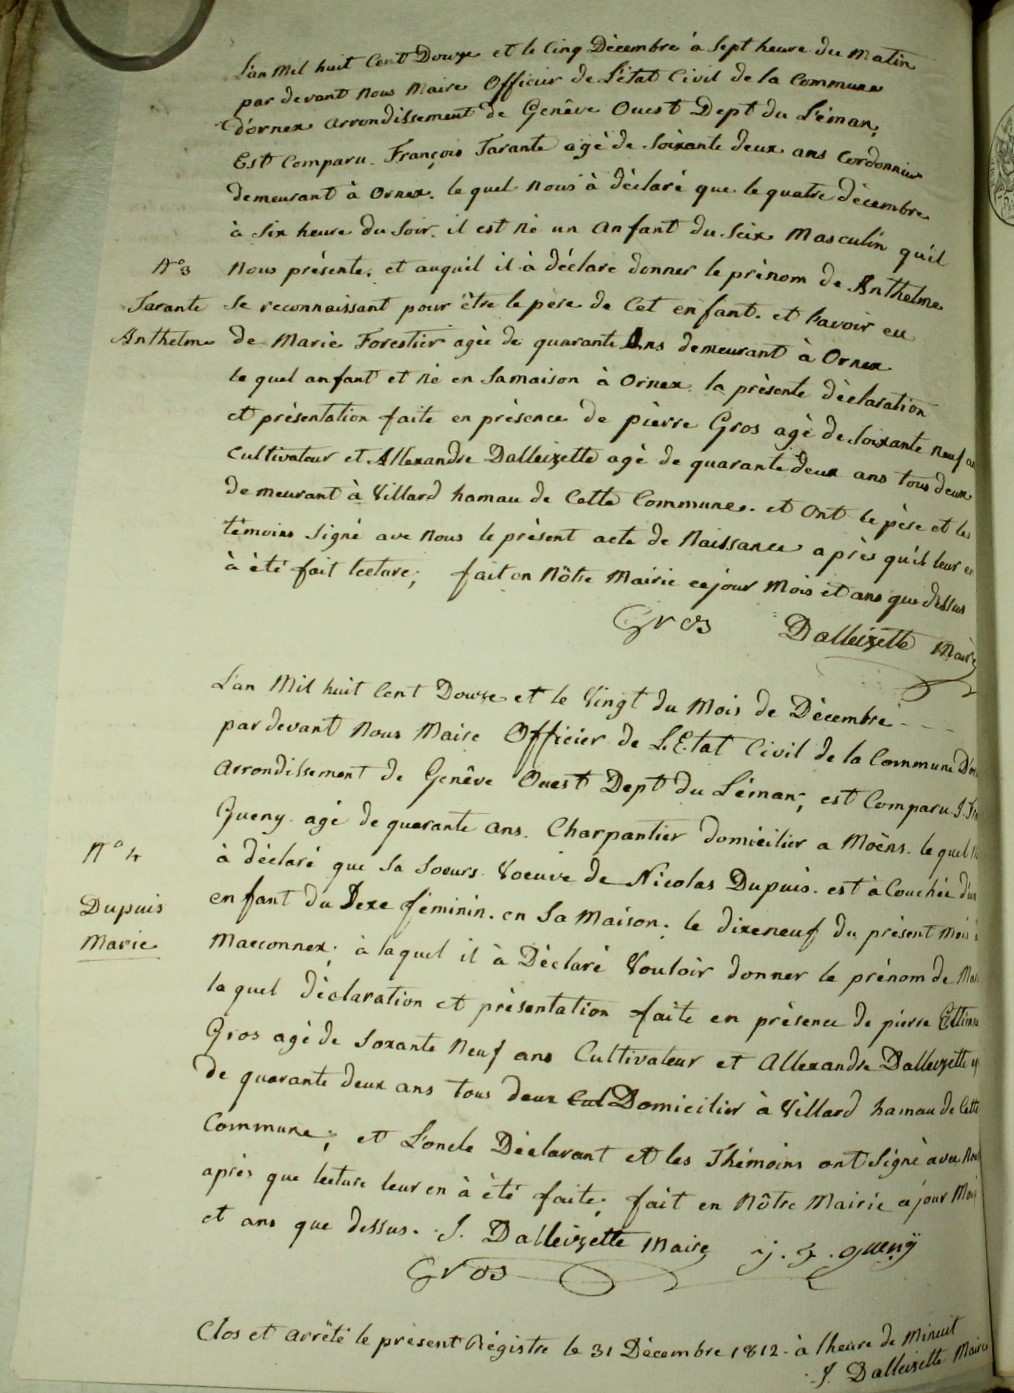 L'an Mil huit Cent Douze et le Cinq Décembre à Sept heure du Matin
par devant Nous Maire Officier de L'état Civil de la Commune
d'ornex arrondissement de Genêve Ouest Dept du Léman,
Est Comparu François Tarante agé de Soixante deux ans Cordonnier
demeurant à Ornex. le quel Nous à déclaré que le quatre décembre
à Six heure du Soir. il est Né un anfant du Seix Masculin qu'il
N° 3
Nous présente. et auquil il à déclare donner le prénom de Anthelme
Tarante
Se reconnaissant pour être le père de Cet enfant. et l'avoir eu
Anthelme
de Marie Forestier agée de quarante Ans demeurant à Ornex
le quel anfant et Né en Samaison à Ornex la présente déclaration
et présentation faite en présence de pièrre Gros agé de Soixante Neuf
Cultivateur et Allexandre Dalleizette agé de quarante deux ans tous deux
demeurant à Villard hamau de Cette Commune. et Ont le père et les
témoins Signé ave Nous le présent acte de Naissance après qu'il leur en
à été fait lecture; fait en Nôtre Mairie cejour Mois et ans que dessus
Gros Dalleizette Maire
L'an Mil huit Cent Douze et le Vingt du Mois de Décembre
par devant Nous Maire Officier de L'Etat Civil de la Commune
arrondissement de Genêve Ouest Dept du Léman; est Comparu
Queny agé de quarante ans. Charpantier domicilier a Moëns. le quel
N° 4
à déclaré que Sa Soeurs Voeuve de Nicolas Dupuis. est à Couchée
Dupuis
enfant du Sexe féminin. en Sa Maison. le dixeneuf du présent Mois
Marie
Maconnex; à laquel il à Déclaré Vouloir donner le prénom de
laquel déclaration et présentation faite en présence de pierre Ettienne
Gros agé de Soxante Neuf ans Cultivateur et Allexandre Dalleizette
de quarante deux ans tous deux Cul Domicilier à Villard hamau de Cette
Commune; et L'oncle Déclarant et les Thémoins ont Signé avec
après que lecture leur en à été faite; fait en Nôtre Mairie cejour Mois
et ans que dessus. J. Dalleizette Maire j. f. queny
Gros
Clos et arrêté le présent Régistre le 31 Décembre 1812. à l'heure de Minuit
J. Dalleizette Maire